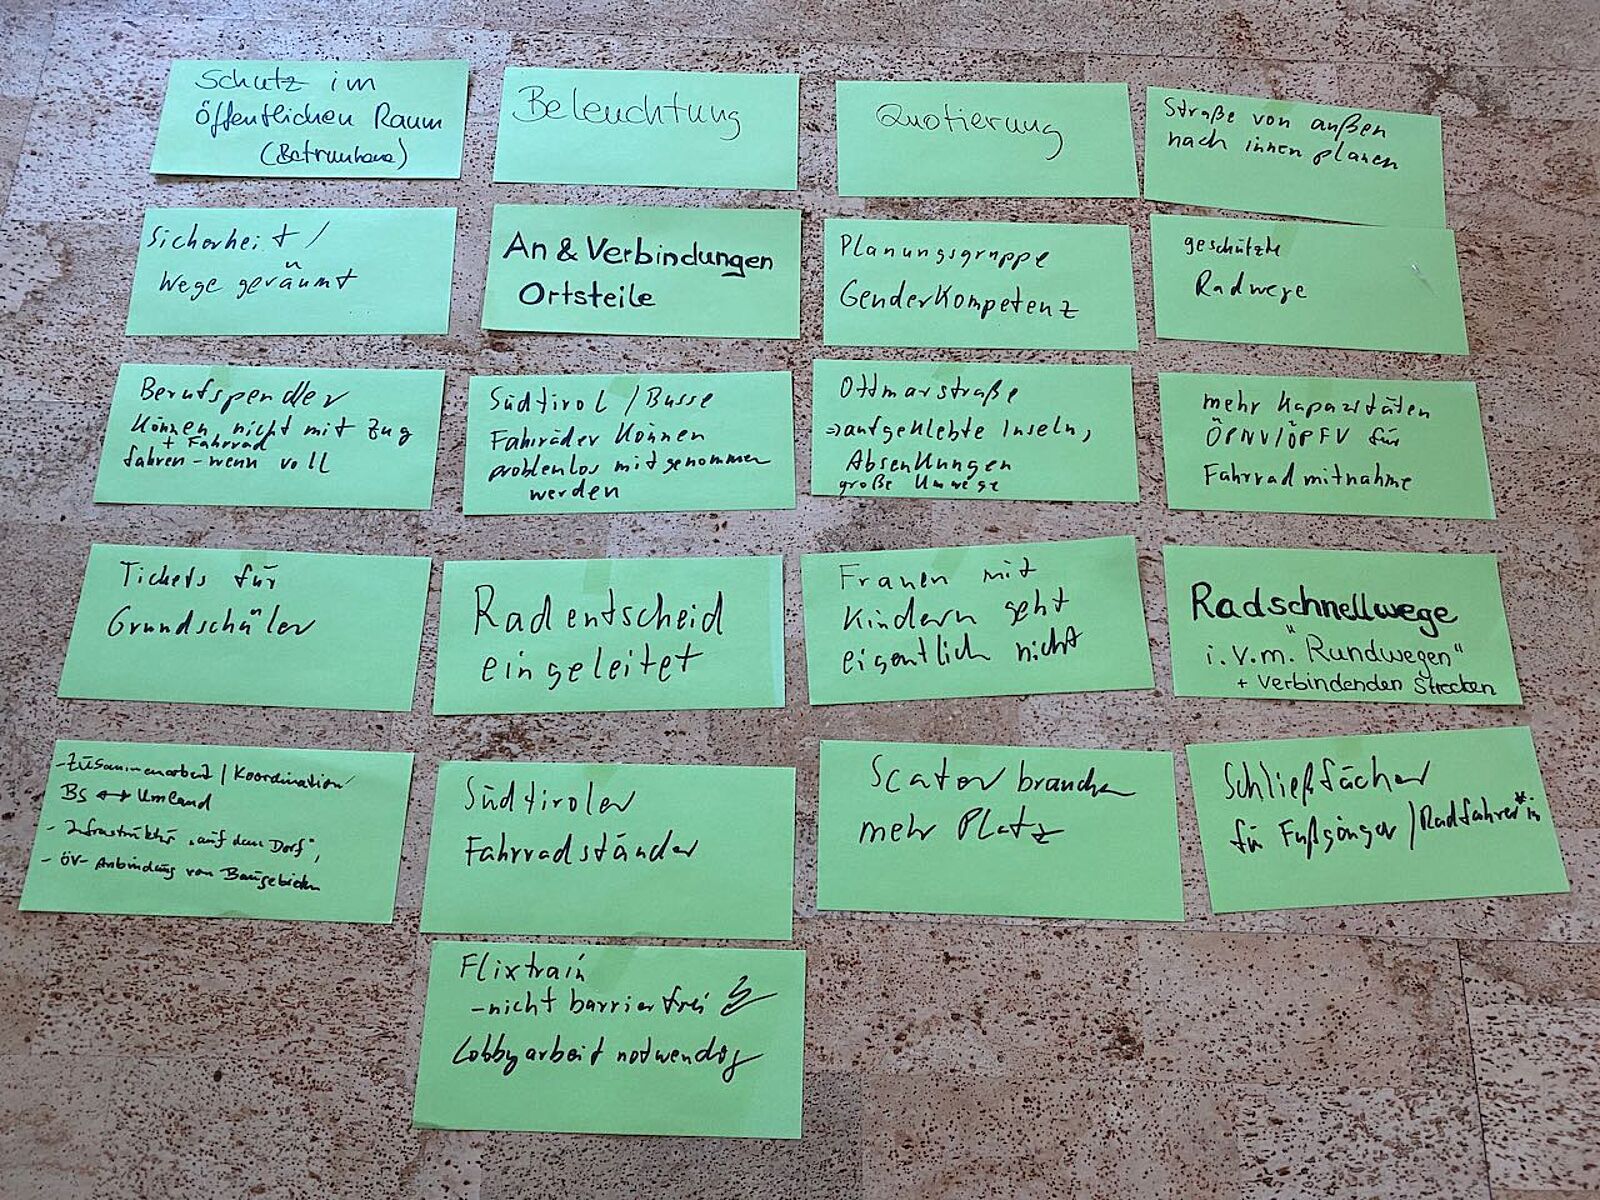 Schutz im
öffentlichen Raum
Beleuchtung
Quotierung
Straße von außen
nach innen planen
Sicherheit /
Wege geräumt
An & Verbindungen
Ortsteile
Planungsgruppe
GenderKompetenz
geschützte
Radwege
Berufspendler
können nicht mit Zug
+ Fahrrad
fahren - wenn voll
Südtirol / Busse
Fahrräder können
problemlos mitgenommen
werden
Ottmarstraße
⇒ aufgeklebte Inseln,
Absenkungen
große Umwege
mehr Kapazitäten
ÖPNV/ÖPFV für
Fahrradmitnahme
Tickets für
Grundschüler
Radentscheid
eingeleitet
Frauen mit
Kindern geht
eigentlich nicht
Radschnellwege
i.V.m. "Rundwegen"
+ verbindenden Strecken
- Zusammenarbeit / Koordination
BS ↔ Umland
- Infrastruktur „auf dem Dorf",
- ÖV-Anbindung von Baugebieten
Südtiroler
Fahrradständer
Scater brauchen
mehr Platz
Schließfächer
für Fußgänger / Radfahrer*in
Flixtrain
- nicht barrierfrei
Lobbyarbeit notwendig